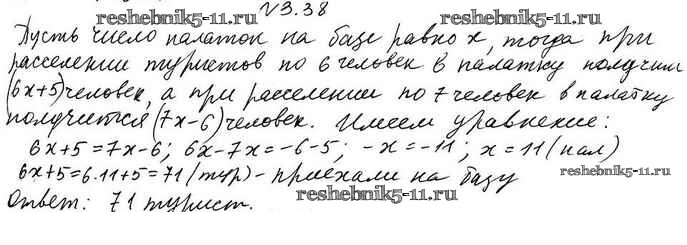 №3.38
reshebnik5-11.ru
Пусть число палаток на базе равно x, тогда при
расселении туристов по 6 человек в палатку получим
(6x+5) человек, а при расселении по 7 человек в палатку
получится (7x-6) человек. Имеем уравнение:
6x+5=7x-6; 6x-7x=-6-5; -x=-11; x=11 (пал)
6x+5=6·11+5=71 (тур) - приехали на базу
reshebnik5-11.ru
reshebnik5-11.ru
Ответ: 71 турист.